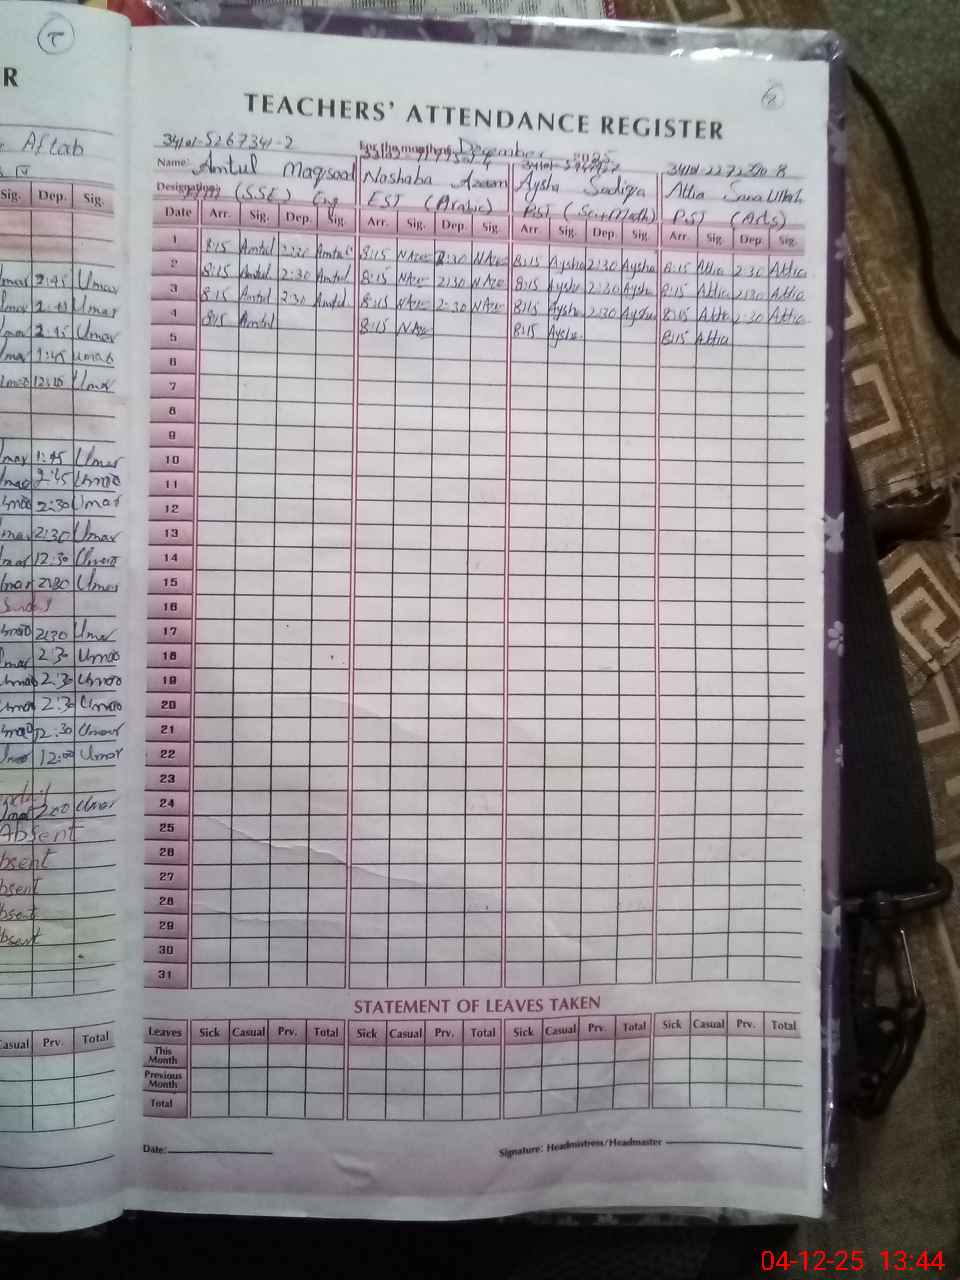 R
Aftab
Sig. Dep. Sig.
2:45 Umar
Umar
Umar
1:45 Umar
Umar
1:45 Umar
2:45
2:30 Umar
2:30 Umar
12:30
2:30 Umar
Sunday
2:30 Umar
2:30 Umar
2:30
2:30 Umar
12:30 Umar
12:00 Umar
2:00 Umar
Absent
Absent
Absent
Absent
Absent
Casual Prv. Total
TEACHERS' ATTENDANCE REGISTER
34101-5267341-2 For the month of December 2025
Name: Amtul Maqsood Noshaba Azam Aysha Sadiqa Attia Sana Ullah
Designation (SSE) Eng EST (Arabic) PST (Sci+Math) PST (Arts)
Date Arr. Sig. Dep. Sig. Arr. Sig. Dep. Sig. Arr. Sig. Dep. Sig. Arr. Sig. Dep. Sig.
1 8:15 Amtul 2:30 Amtul 8:15 NAze 2:30 NAze 8:15 Aysha 2:30 Aysha 8:15 Attia 2:30 Attia
2 8:15 Amtul 2:30 Amtul 8:15 NAze 2:30 NAze 8:15 Aysha 2:30 Aysha 8:15 Attia 2:30 Attia
3 8:15 Amtul 2:30 Amtul 8:15 NAze 2:30 NAze 8:15 Aysha 2:30 Aysha 8:15 Attia 2:30 Attia
4 8:15 Amtul 8:15 NAze 8:15 Aysha 8:15 Attia
5
6
7
8
9
10
11
12
13
14
15
16
17
18
19
20
21
22
23
24
25
26
27
28
29
30
31
STATEMENT OF LEAVES TAKEN
Leaves Sick Casual Prv. Total Sick Casual Prv. Total Sick Casual Prv. Total Sick Casual Prv. Total
This Month
Previous Month
Total
Date:
Signature: Headmistress/Headmaster
04-12-25 13:44